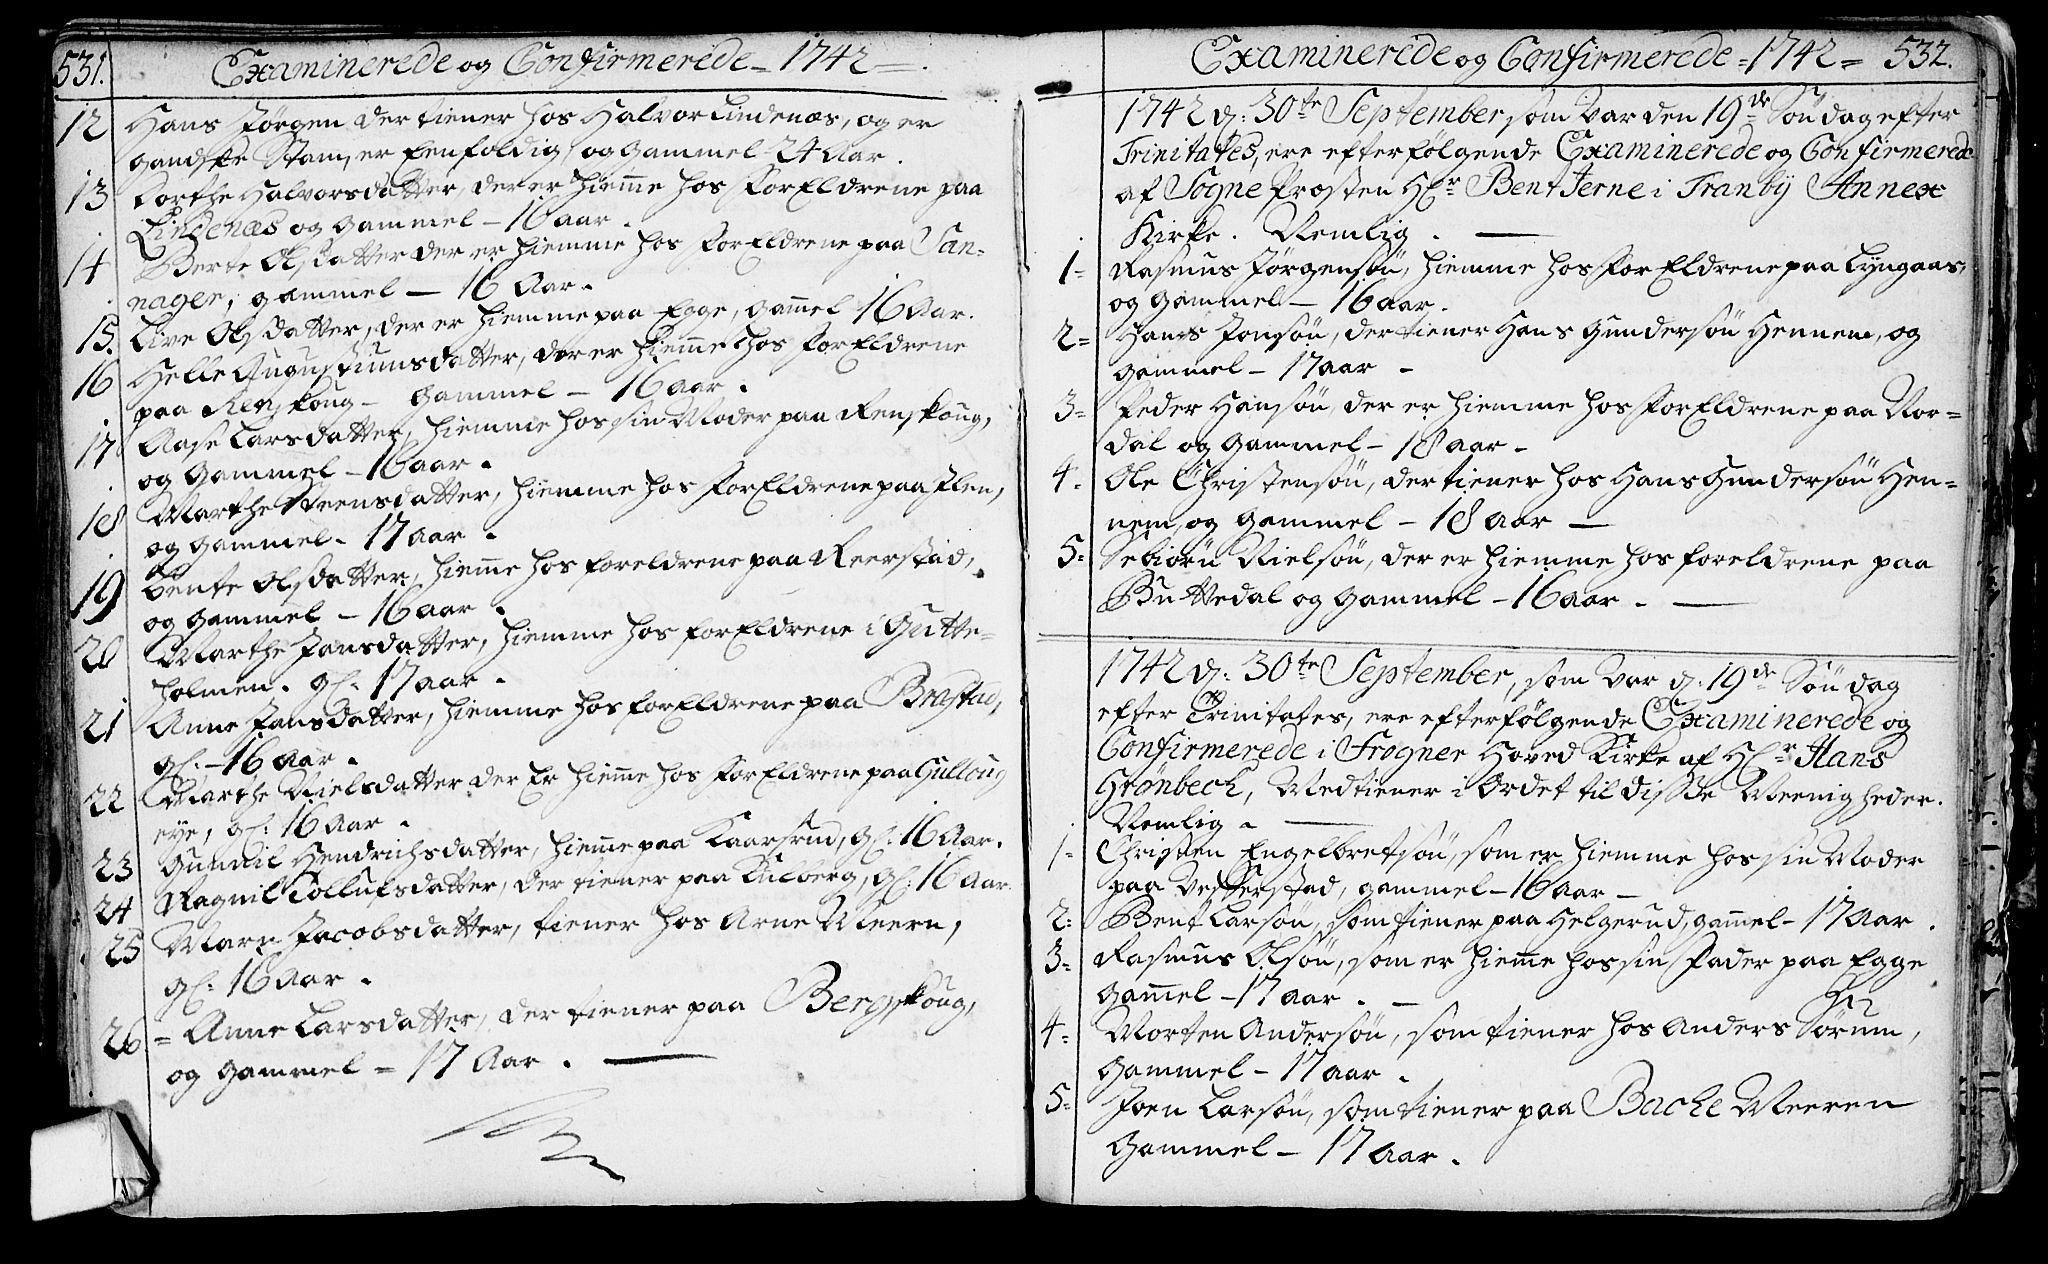 531. Examinerede og Confirmerede = 1742 =.
12 Hans Jørgen der tiener hos Halvor Lindenæs, og er
gandske Stam, er Eenfoldig og gammel - 24 Aar.
13 Dorthe Halvorsdatter, der er hiemme hos ForEldrene paa
Lindenæs og gammel - 16 aar.
14 Berte Olsdatter der er hiemme hos ForEldrene paa San-
nager, gammel — 16 Aar.
15. Live Olsdatter, der er hiemme paa Egge, gammel 16 Aar.
16 Helle Augustinusdatter, der er hiemme hos ForEldrene
paa Renskoug - gammel - 16 aar.
17 Aase Larsdatter, hiemme hos sin Moder paa Renskoug,
og gammel - 16 aar.
18 Marthe Steensdatter, hiemme hos ForEldrene paa Flen,
og gammel - 17 aar.
19 Bente Olsdatter, hiemme hos foreldrene paa Reerstad,
og gammel - 16 aar.
20 Marthe Jansdatter, hiemme hos forEldrene i Gutte-
holmen. gl: 17 aar.
21 Anne Jansdatter, hiemme hos forEldrene paa Bragstad,
gl: - 16 Aar.
22 Marthe Nielsdatter der Er hiemme hos ForEldrene paa Gulloug
eye, gl: 16 Aar.
23 Gunnil Hendrichsdatter, hiemme paa Kaarsrud, gl: 16 Aar.
24 Ragnil Tollufsdatter, der tiener paa Kulberg, gl: 16 Aar.
25 Marn Jacobsdatter, tiener hos Arne Meern,
gl: 16 Aar.
26 = Anne Larsdatter, der tiener paa Bergskoug,
og gammel = 17 Aar. —
Examinerede og Confirmerede = 1742 = 532.
1742 d: 30te September, som var den 19de Søndag efter
Trinitates, ere efterfølgende Examinerede og Confirmerede
af Sogne Præsten Hr Bent Jerne i Tranbÿ Annex
Kirke. Nemlig. —
1= Rasmus Jørgensøn, hiemme hos ForEldrene paa Lyngaas,
og gammel - 16 aar.
2= Hans Jonsøn, der tiener Hans Gundersøn Hennem, og
gammel - 17 aar -
3= Peder Hansøn, der er hiemme hos ForEldrene paa Nor=
dal og gammel - 18 aar -
4. Ole Christensøn, der tiener hos Hans Gundersøn Hen=
nem, og gammel - 18 aar —
5= Sebiørn Nielsøn, der er hiemme hos foreldrene paa
Buttedal og gammel - 16 aar. —
1742 d: 30te September, som var d: 19de Søndag
efter Trinitates, ere efterfølgende Examinerede og
Confirmerede i Frogner Hoved Kirke af Hr Hans
Grønbech, Medtiener i Ordet til disse Meenigheder.
Nemlig. —
1= Christen Engelbretsøn, som er hiemme hos sin Moder
paa Vefferstad, gammel - 16 aar —
2: Bent Larsøn, som tiener paa Helgerud, gammel - 17 Aar.
3= Rasmus Olsøn, som er hiemme hos sin Fader paa Egge
gammel - 17 aar. —
4= Morten Andersøn, som tiener hos Anders Sørum,
gammel - 17 aar.
5= Joen Larsøn, som tiener paa Bache Meeren
gammel - 17 aar.